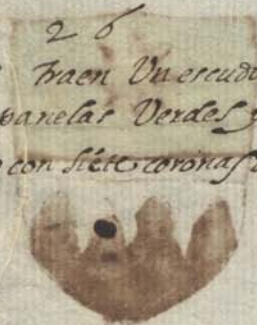 26
traen Un escudo
panelas Verdes y
con siete coronas